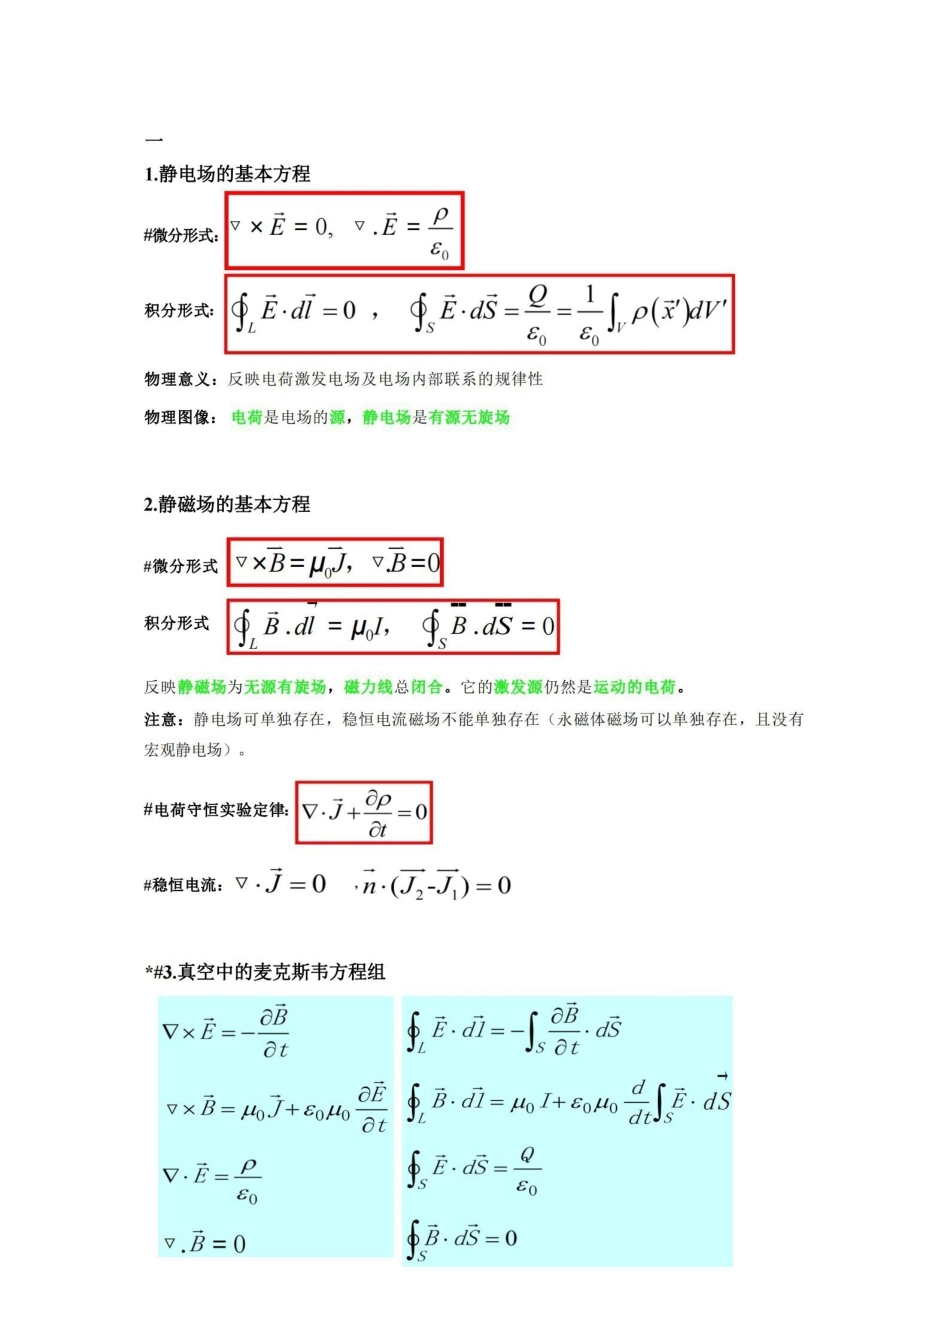 一
1.静电场的基本方程
#微分形式： ▽ × E⃗ = 0, ▽ .E⃗ = ρ/ε₀
积分形式： ∮_L E⃗·dl⃗ = 0 ， ∮_S E⃗·dS⃗ = Q/ε₀ = 1/ε₀ ∫_V ρ(x⃗′)dV′
物理意义：反映电荷激发电场及电场内部联系的规律性
物理图像： 电荷是电场的源，静电场是有源无旋场
2.静磁场的基本方程
#微分形式 ▽×B⃗=μ₀J⃗，▽.B⃗=0
积分形式 ∮_L B⃗.dl⃗ = μ₀I， ∮_S B.dS = 0
反映静磁场为无源有旋场，磁力线总闭合。它的激发源仍然是运动的电荷。
注意：静电场可单独存在，稳恒电流磁场不能单独存在（永磁体磁场可以单独存在，且没有
宏观静电场）。
#电荷守恒实验定律： ∇·J⃗+∂ρ/∂t=0
#稳恒电流：▽·J⃗=0 ,n⃗·(J⃗₂-J⃗₁)=0
*#3.真空中的麦克斯韦方程组
∇×E⃗=-∂B⃗/∂t ∮_L E⃗·dl⃗=-∫_S ∂B⃗/∂t·dS⃗
▽×B⃗=μ₀J⃗+ε₀μ₀ ∂E⃗/∂t ∮_L B⃗·dl⃗=μ₀I+ε₀μ₀ d/dt∫_S E⃗·dS⃗
∇·E⃗=ρ/ε₀ ∮_S E⃗·dS⃗=Q/ε₀
▽.B⃗=0 ∮_S B⃗·dS⃗=0